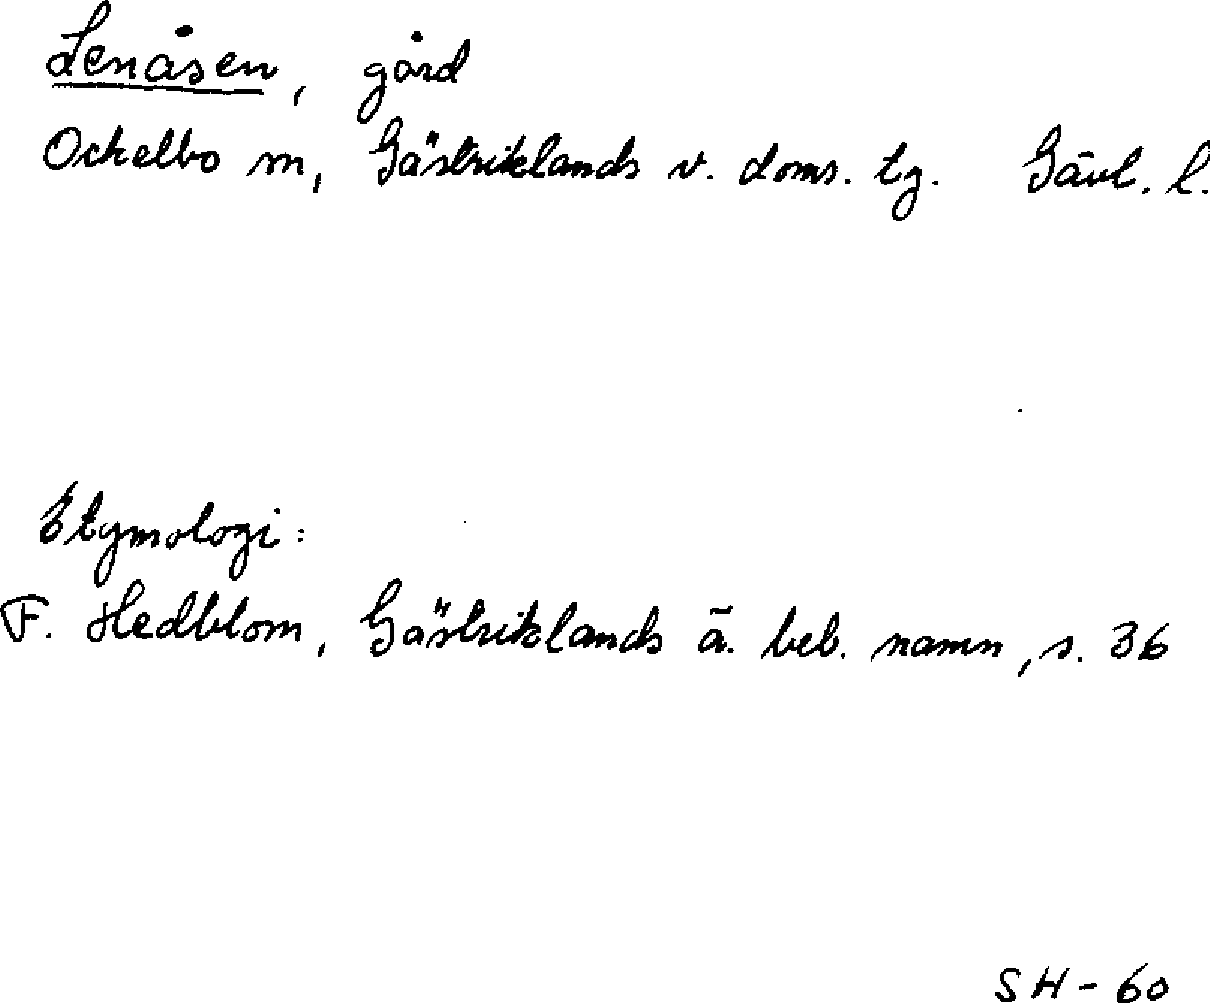 Lenåsen, gård
Ockelbo sn, Gästriklands v. doms. tg. Gävl. l.
Etymologi:
F. Hedblom, Gästriklands ä. beb. namn, s. 36
SH-60